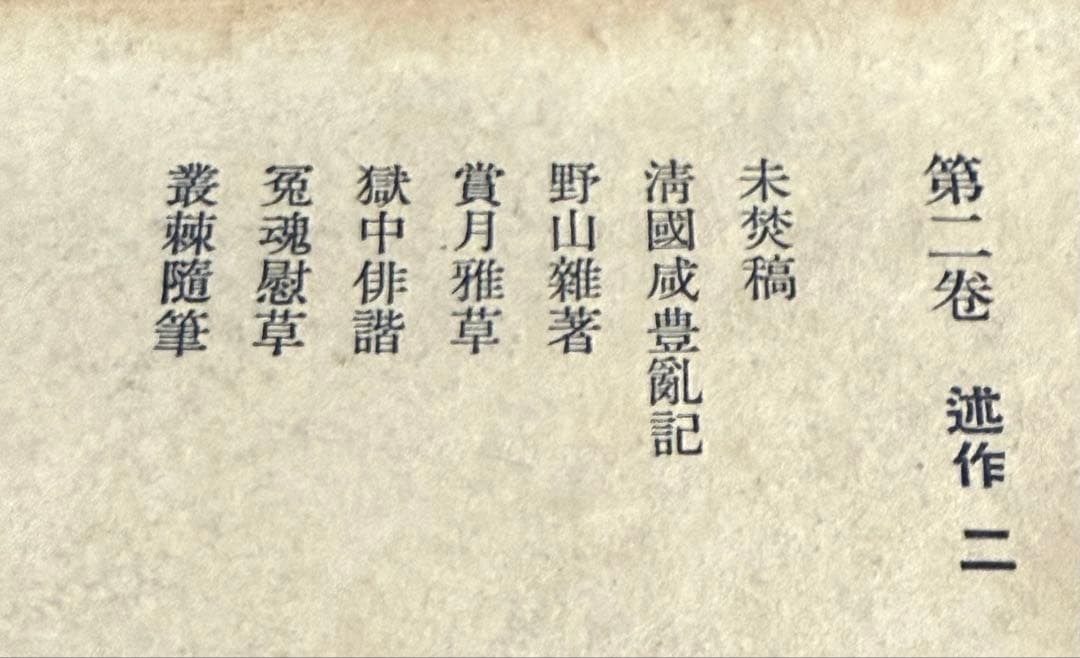 第二卷 述作 二
未焚稿
淸國咸豊亂記
野山雜著
賞月雅草
獄中俳諧
冤魂慰草
叢棘隨筆